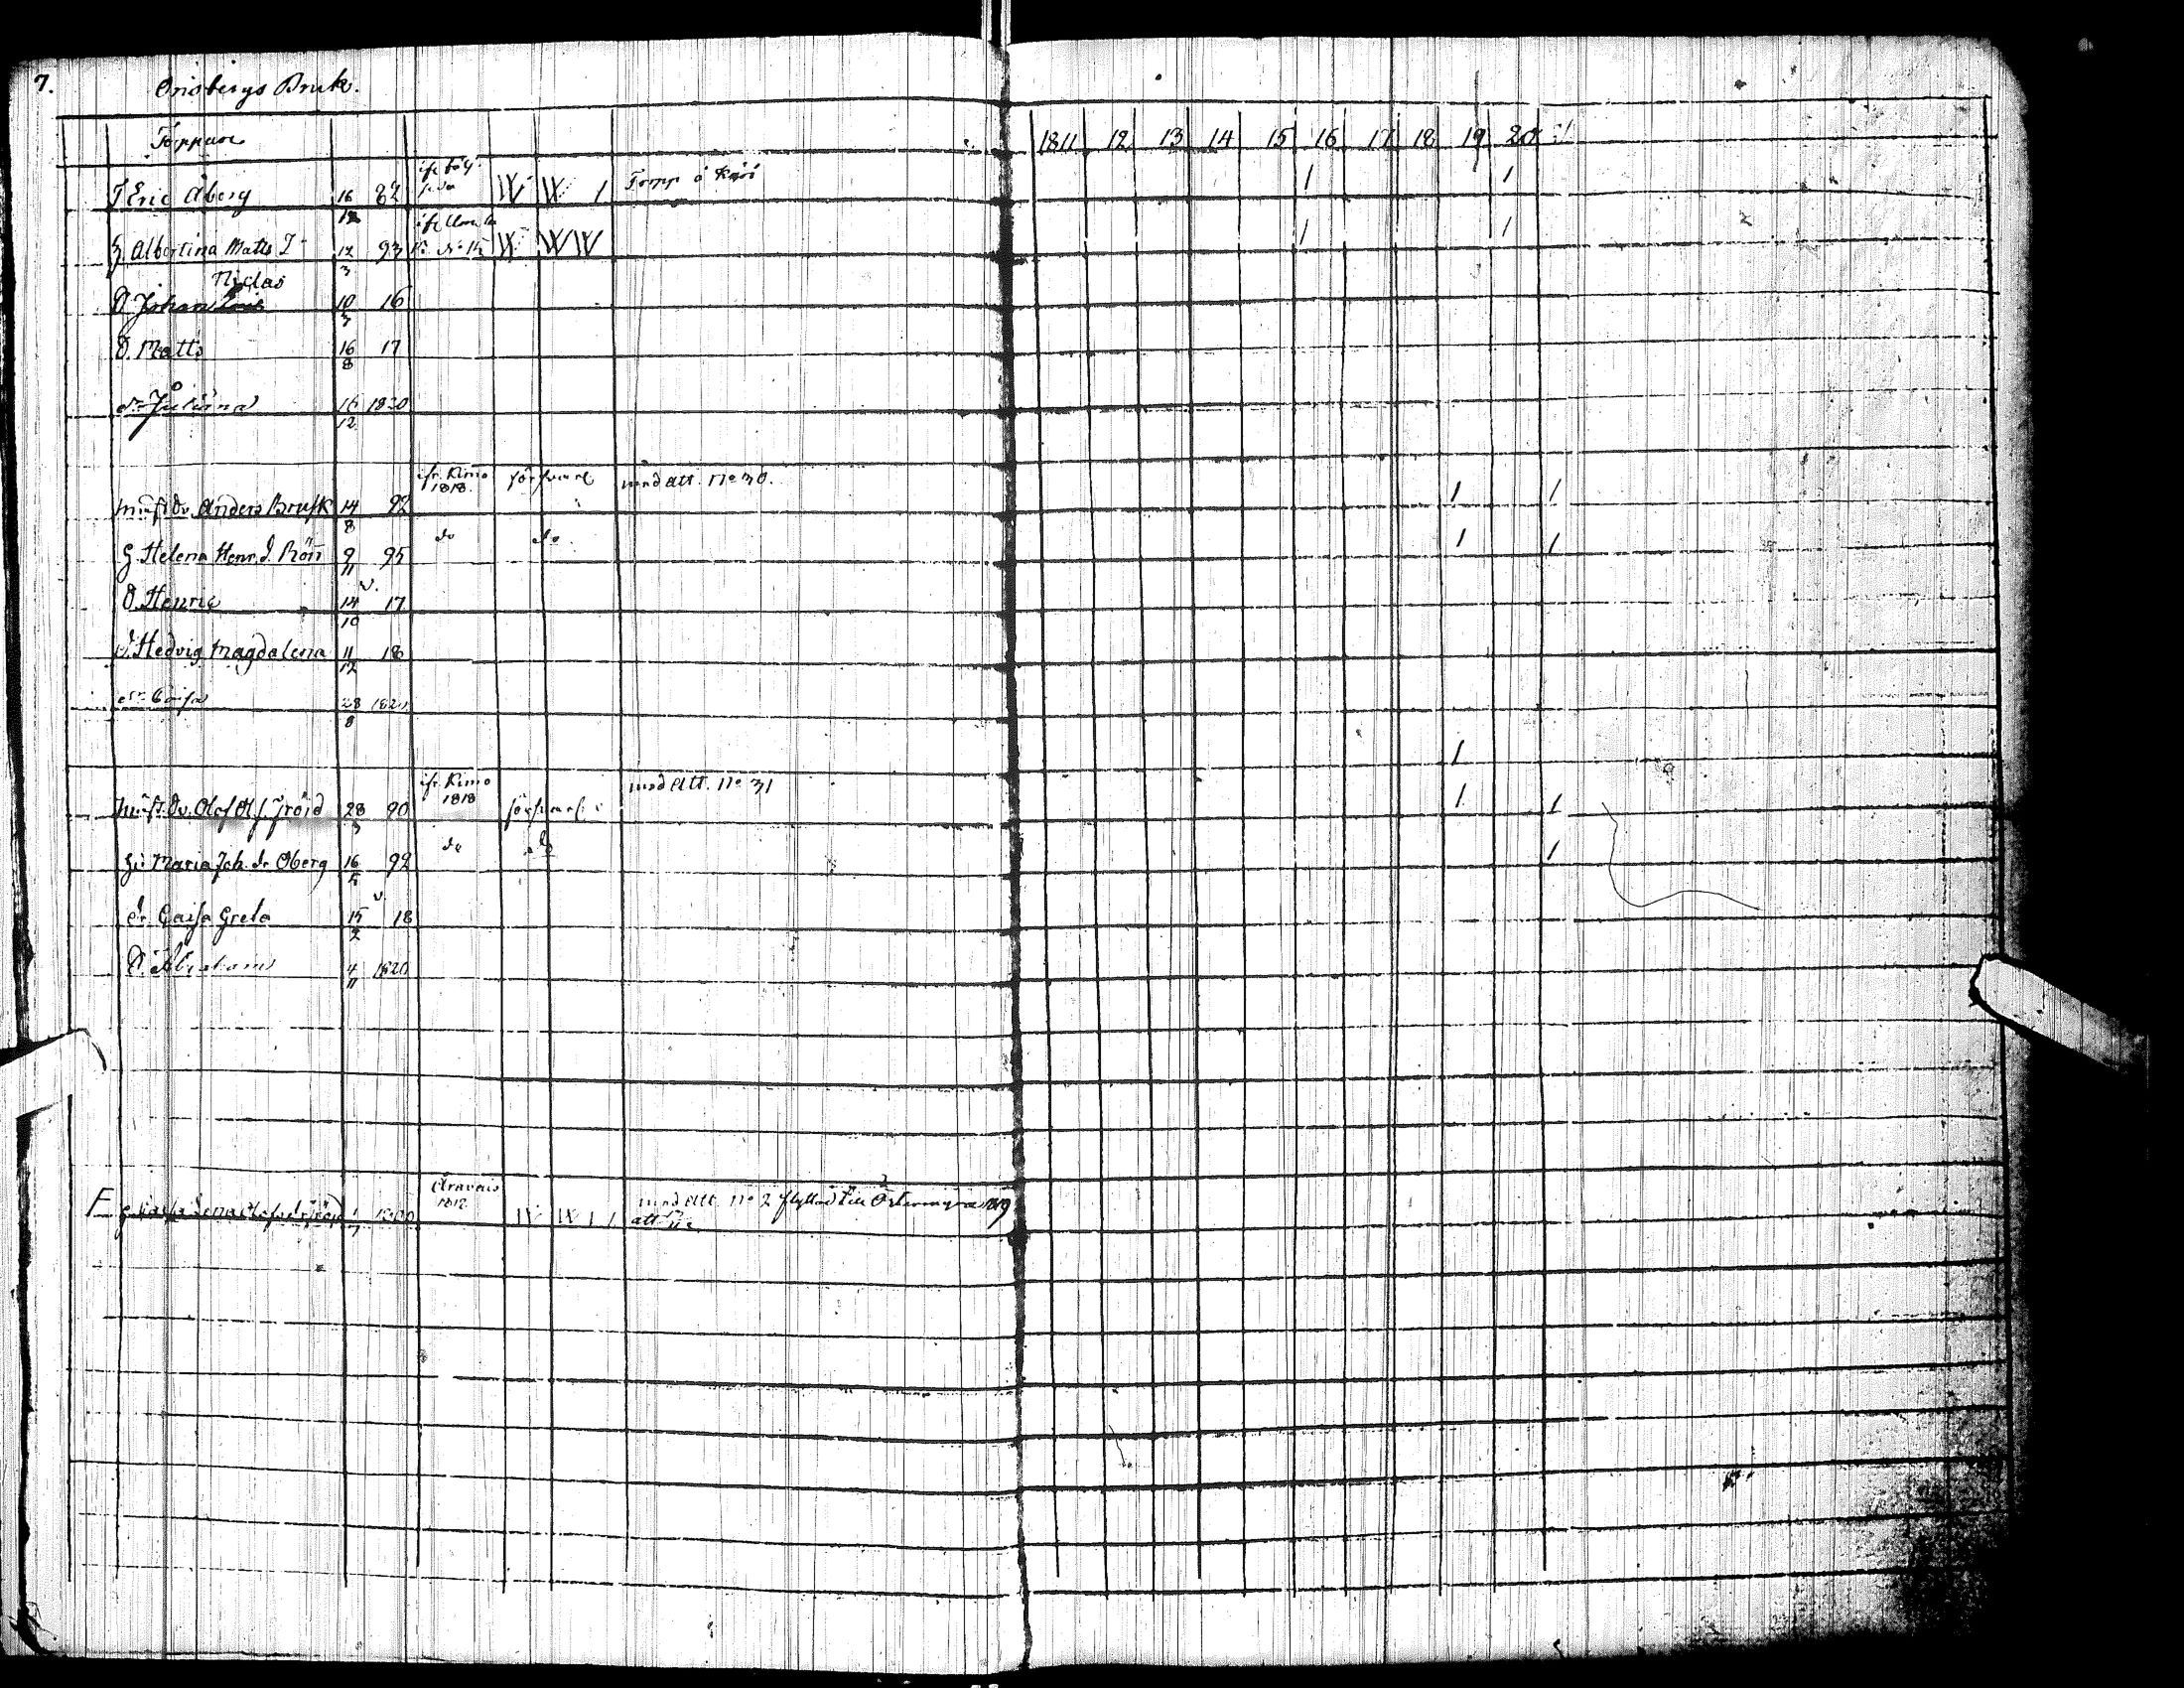 7.
Orisbergs Bruk.
Torppare
1811 12 13 14 15 16 17 18 19 20 21
T Eric Åberg 16/12 82 Torpp å 1 1
H. Albertina Matts D 12/3 93 1 1
Niclas
S Johan Eric 10/3 16
S. Matts 16/8 17
dr Juliana 16/12 1820
ifr. Kimo 1818. försvarl med att. No 30.
Anders Brusk 14/8 92 1 1
H. Helena Henr. d. Rön 9/11 95 do do 1 1
v.
S. Henric 14/10 17
d. Hedvig Magdalena 11/12 18
dr Caisa 28/8 1820
1
ifr. Kimo 1818 försvarl med Att. No 31
Olof Ol. s. Fröjd 28/3 90 1 1
Hu Maria Joh. dr Öberg 16/5 92 do do 1
v.
dr Caisa Greta 15/2 18
S. Abraham 4/11 1820
Oravais 1812 med Att. No 2 flyttad till Östermyra 1819
F Lena Olofsdr Fröjd 1/7 1800 att